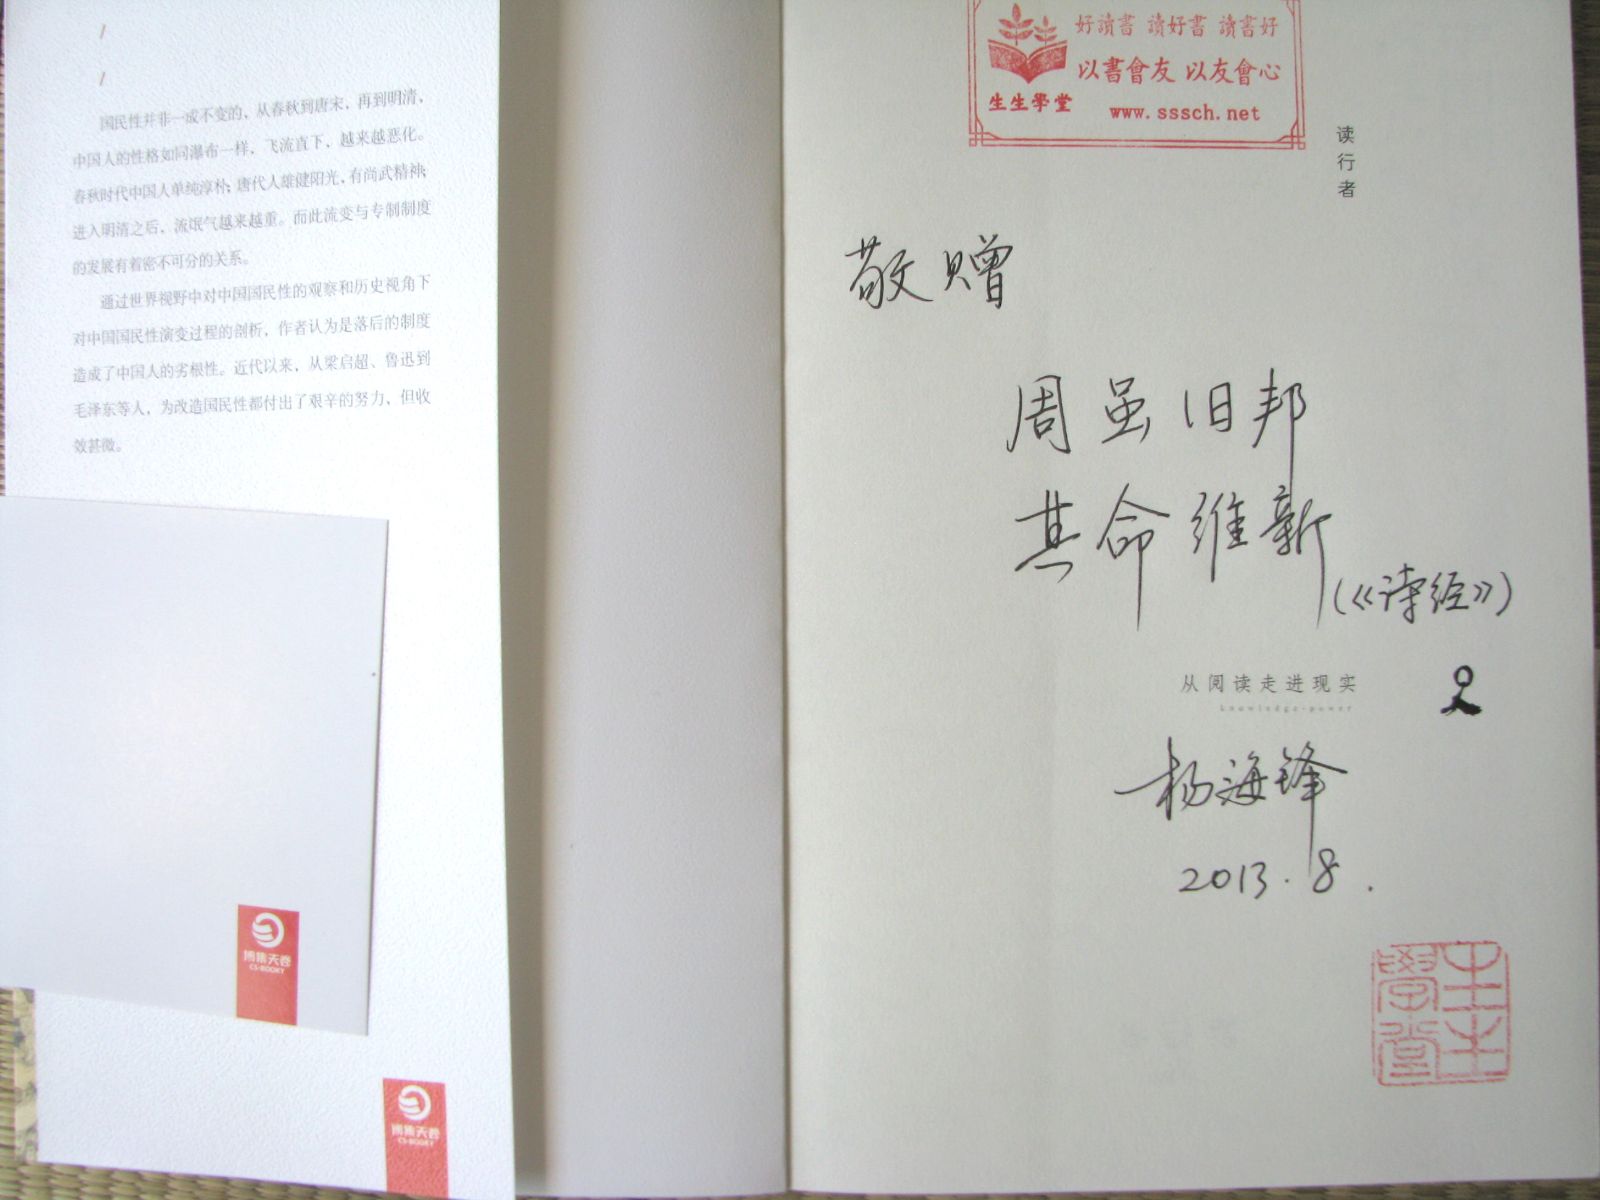 /
/
国民性并非一成不变的，从春秋到唐宋，再到明清，
中国人的性格如同瀑布一样，飞流直下，越来越恶化。
春秋时代中国人单纯淳朴；唐代人雄健阳光，有尚武精神；
进入明清之后，流氓气越来越重。而此流变与专制制度
的发展有着密不可分的关系。
通过世界视野中对中国国民性的观察和历史视角下
对中国国民性演变过程的剖析，作者认为是落后的制度
造成了中国人的劣根性。近代以来，从梁启超、鲁迅到
毛泽东等人，为改造国民性都付出了艰辛的努力，但收
效甚微。
博集天卷
CS-BOOKY
博集天卷
CS-BOOKY
好讀書 讀好書 讀書好
以書會友 以友會心
生生學堂
www.sssch.net
读行者
敬赠
周虽旧邦
其命维新
(《诗经》)
从阅读走进现实
knowledge-power
杨海锋
2013.8.
生生學堂